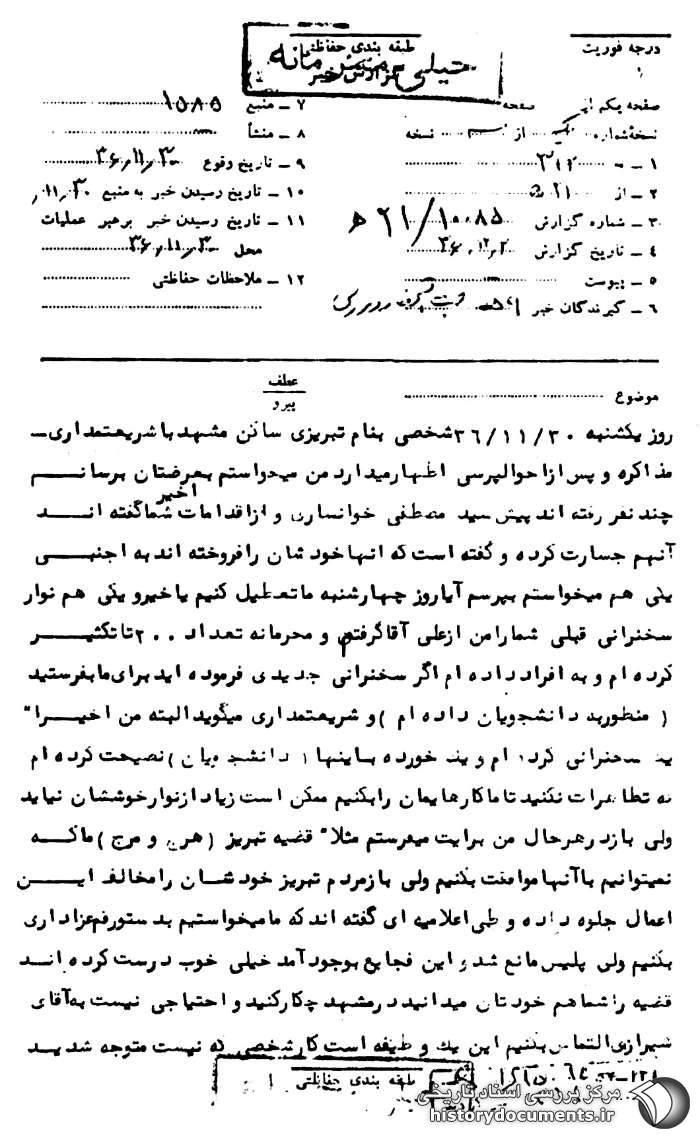 درجه فوریت
طبقه بندی حفاظتی
خیلی محرمانه
گزارش خبر
صفحه یکم از صفحه
نسخهٔ شماره یک از نسخه
۱ ـ به ۳۱۲
۲ ـ از ۲۱ ه
۳ ـ شماره گزارش ۱۰۰۸۵/ ۲۱ ه
۴ ـ تاریخ گزارش ۳۶،۱۲،۲
۵ ـ پیوست
۶ ـ گیرندگان خبر
۷ ـ منبع ۱۵۸۵
۸ ـ منشأ
۹ ـ تاریخ وقوع ۳۶،۱۱،۳۰
۱۰ ـ تاریخ رسیدن خبر به منبع ۱۱،۳۰،
۱۱ ـ تاریخ رسیدن خبر برهبر عملیات
محل ۳۶،۱۱،۳۰
۱۲ ـ ملاحظات حفاظتی
موضوع
عطف
پیرو
روز یکشنبه ۳۶/۱۱/۳۰ شخصی بنام تبریزی ساکن مشهد با شریعتمداری ـ
مذاکره و پس از احوالپرسی اظهار میدارد من میخواستم بعرضتان برسانم
چند نفر رفته اند پیش سید مصطفی خوانساری و از اقدامات اخیر شما گفته اند
آنهم جسارت کرده و گفته است که انها خودشان را فروخته اند به اجنبی
یکی هم میخواستم بپرسم آیا روز چهارشنبه ما تعطیل کنیم یا خیر و یکی هم نوار
سخنرانی قبلی شما را من از علی آقا گرفتم و محرمانه تعداد ۲۰۰ تا تکثیر
کرده ام و به افراد داده ام اگر سخنرانی جدیدی فرموده اید برای ما بفرستید
( منظور به دانشجویان داده ام ) و شریعتمداری میگوید البته من اخیرا"
یک سخنرانی کرده ام و یک خورده باینها ( دانشجویان ) نصیحت کرده ام
که تظاهرات نکنید تا ما کارهایمان را بکنیم ممکن است زیاد از نوار خوششان نیاید
ولی باز در هر حال من برایت میفرستم مثلا" قضیه تبریز ( هرج و مرج ) ما که
نمیتوانیم با آنها موافقت بکنیم ولی باز مردم تبریز خودشان را مخالف این
اعمال جلوه داده و طی اعلامیه ای گفته اند که ما میخواستیم بدستور قم عزاداری
بکنیم ولی پلیس مانع شد و این فجایع بوجود آمد خیلی خوب درست کرده اند
قضیه را شما هم خودتان میدانید در مشهد چکار کنید و احتیاجی نیست به آقای
شیرازی التماس بکنیم این یک وظیفه است کار شخصی که نیست متوجه شدید
طبقه بندی حفاظتی
مرکز بررسی اسناد تاریخی
historydocuments.ir